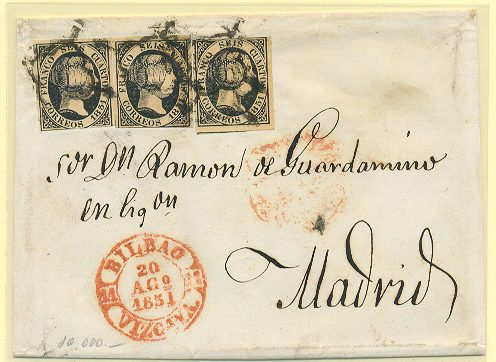 FRANCO SEIS CUARTOS CORREOS 1851
FRANCO SEIS CUARTOS CORREOS 1851
FRANCO SEIS CUARTOS CORREOS 1851
Sor Dn Ramon de Guardamino
en liqon
Madrid
BILBAO
20
AGO
1851
VIZCAYA
10.000.—